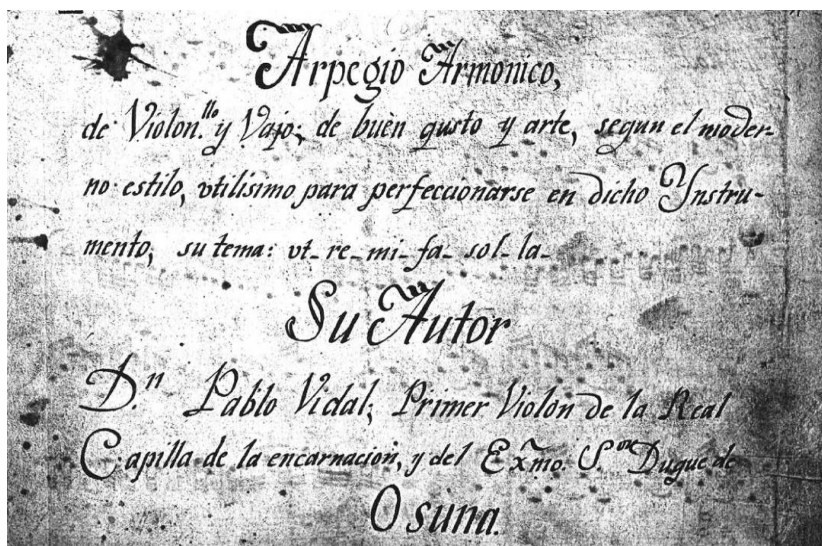 Arpegio Armonico,
de Violon.llo y Vajo; de buen gusto y arte, segun el moder-
no estilo, vtilisimo para perfeccionarse en dicho Ynstru-
mento; su tema: vt- re- mi- fa- sol- la-
Su Autor
D.n Pablo Vidal; Primer Violon de la Real
Capilla de la encarnacion, y del Exmo. S.or Duque de
Osuna.